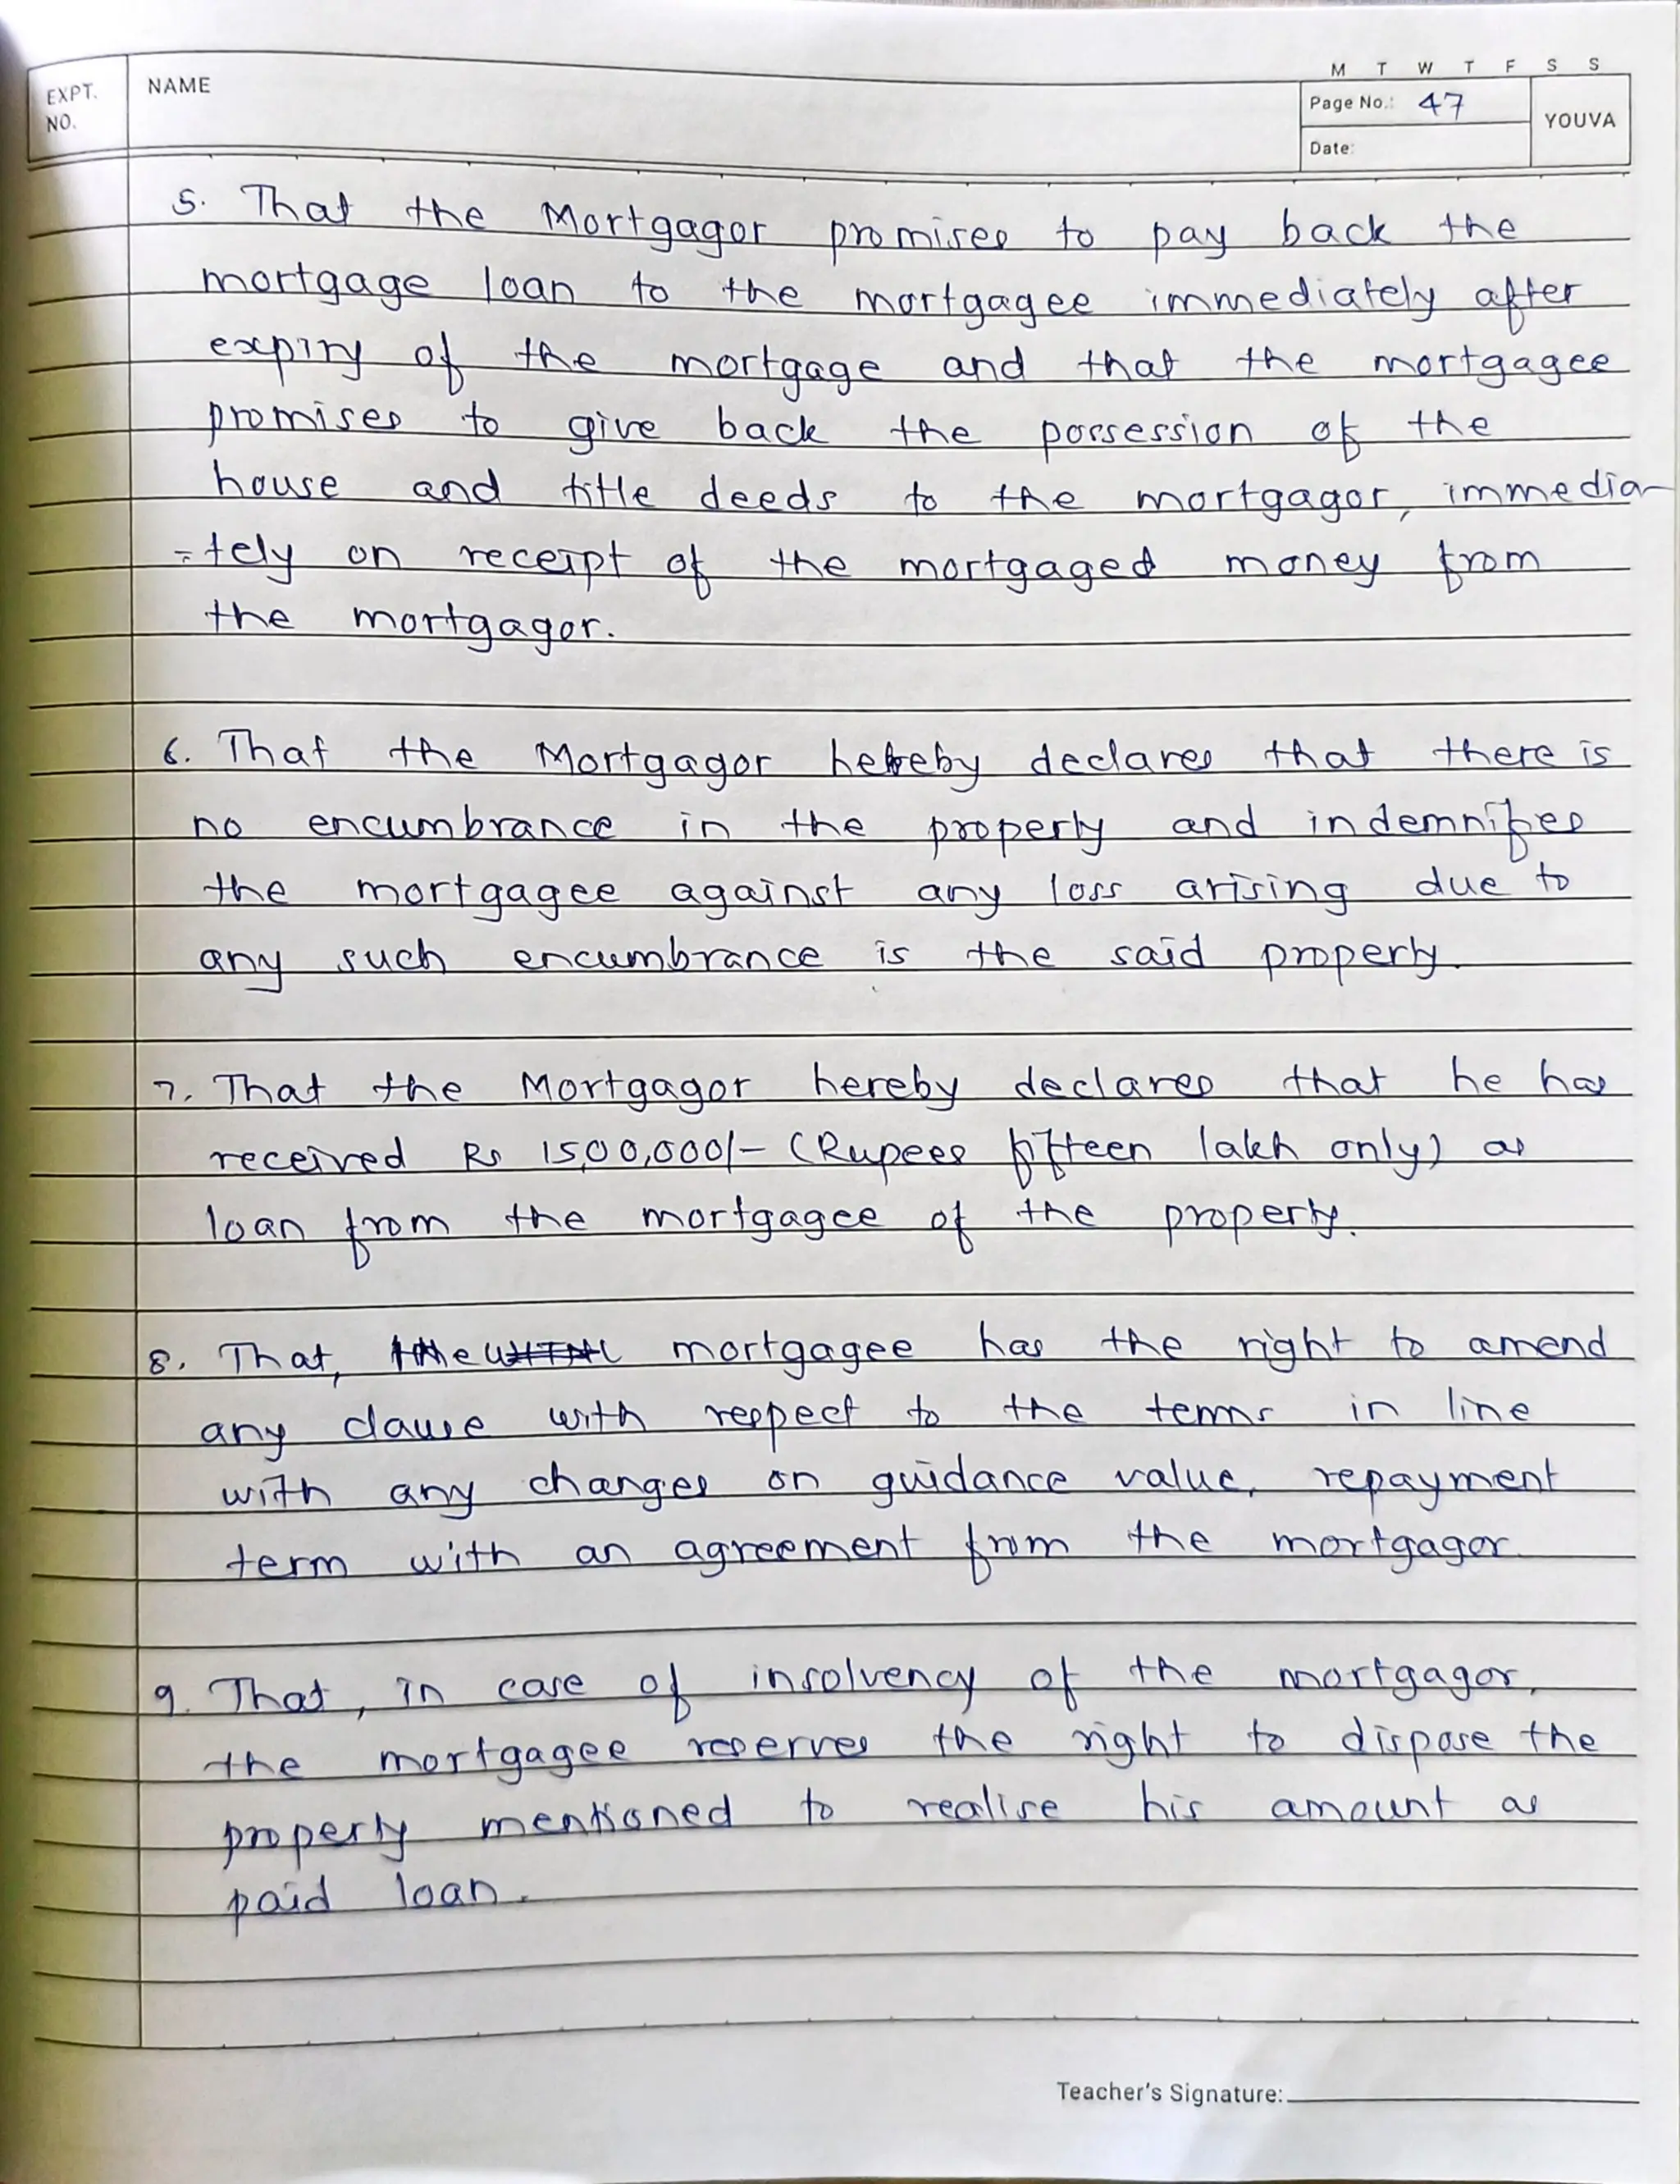 M T W T F S S
EXPT. NO.
NAME
Page No.: 47
YOUVA
Date:
5. That the Mortgagor promises to pay back the
mortgage loan to the mortgagee immediately after
expiry of the mortgage and that the mortgagee
promises to give back the possession of the
house and title deeds to the mortgagor, immedia-
-tely on receipt of the mortgaged money from
the mortgagor.
6. That the Mortgagor hereby declares that there is
no encumbrance in the property and indemnifies
the mortgagee against any loss arising due to
any such encumbrance is the said property.
7. That the Mortgagor hereby declares that he has
received Rs 15,00,000/- (Rupees fifteen lakh only) as
loan from the mortgagee of the property.
8. That, mortgagee has the right to amend
any clause with respect to the terms in line
with any changes on guidance value, repayment
term with an agreement from the mortgagor.
9. That, in case of insolvency of the mortgagor,
the mortgagee reserves the right to dispose the
property mentioned to realise his amount as
paid loan.
Teacher's Signature: